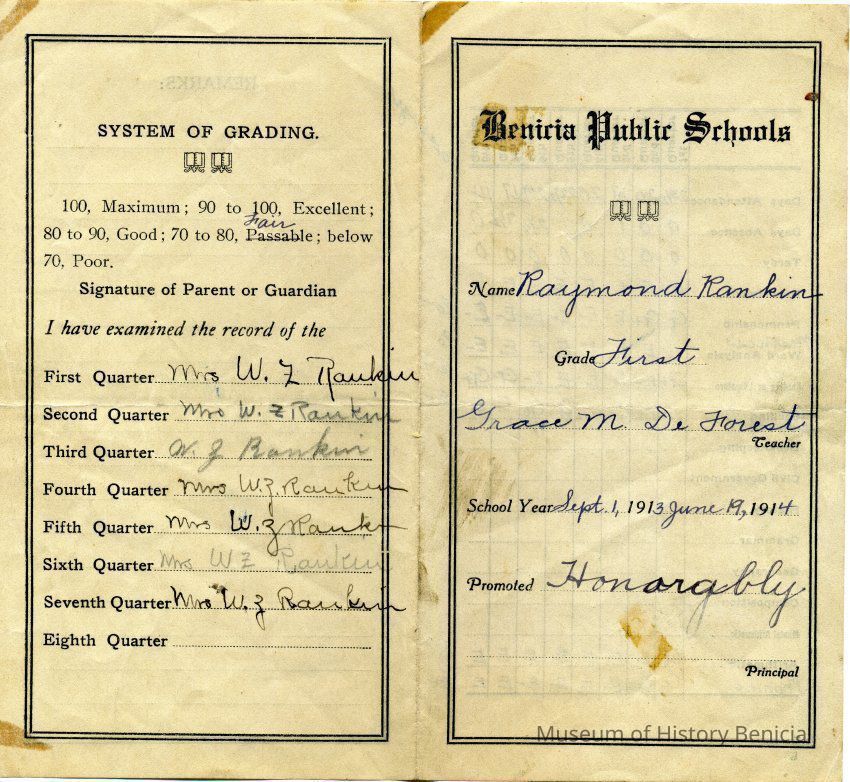 SYSTEM OF GRADING.
100, Maximum; 90 to 100, Excellent;
Fair
80 to 90, Good; 70 to 80, Passable; below
70, Poor.
Signature of Parent or Guardian
I have examined the record of the
First Quarter Mrs W. Z Rankin
Second Quarter Mrs W. Z Rankin
Third Quarter W. Z Rankin
Fourth Quarter Mrs W. Z. Rankin
Fifth Quarter Mrs W. Z Rankin
Sixth Quarter Mrs W Z Rankin
Seventh Quarter Mrs W. Z Rankin
Eighth Quarter
Benicia Public Schools
Name Raymond Rankin
Grade First
Grace M. De Forest
Teacher
School Year Sept. 1, 1913 June 19, 1914
Promoted Honorably
Principal
Museum of History Benicia